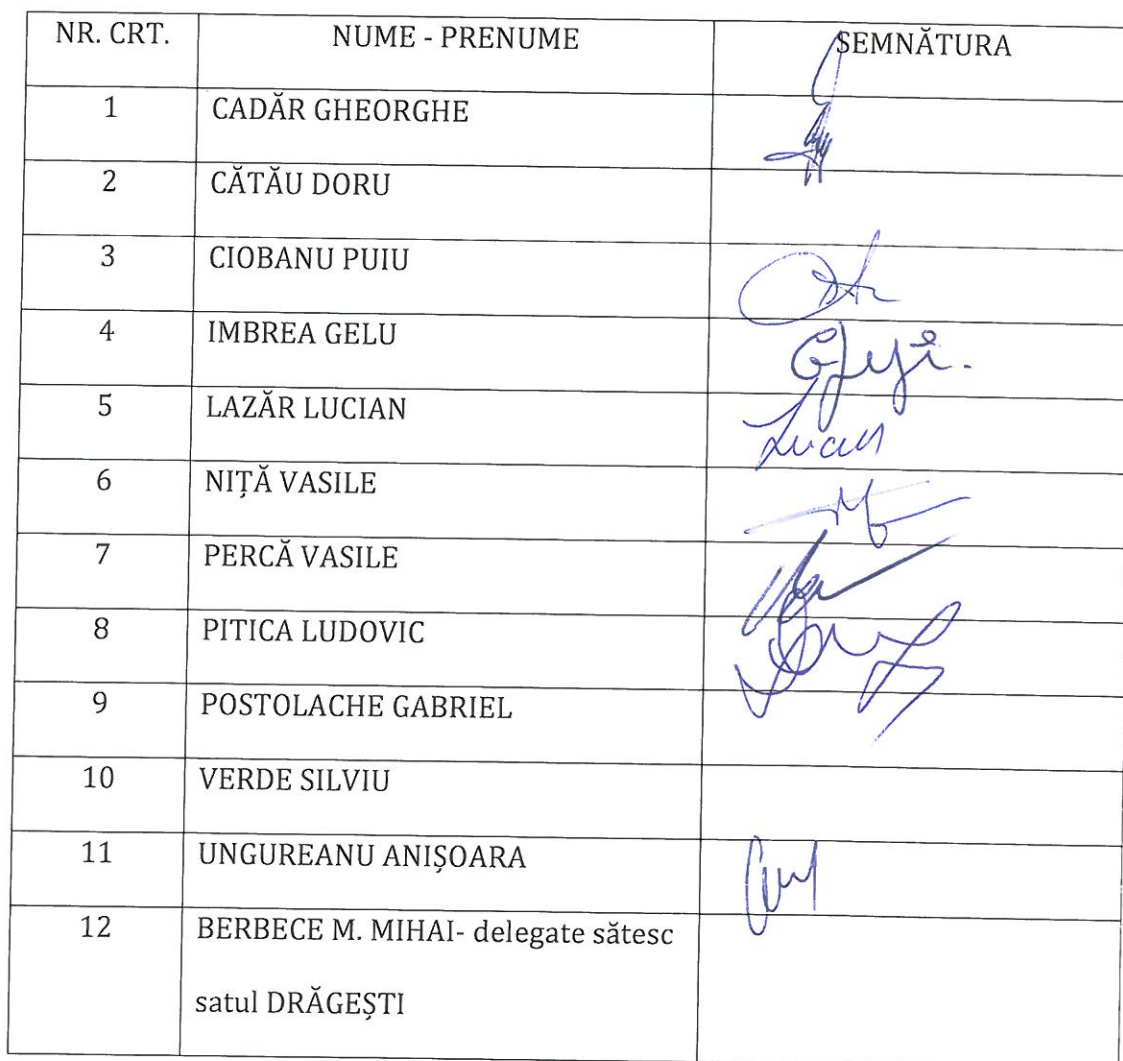 NR. CRT. NUME - PRENUME SEMNĂTURA
1 CADĂR GHEORGHE
2 CĂTĂU DORU
3 CIOBANU PUIU
4 IMBREA GELU
5 LAZĂR LUCIAN
6 NIȚĂ VASILE
7 PERCĂ VASILE
8 PITICA LUDOVIC
9 POSTOLACHE GABRIEL
10 VERDE SILVIU
11 UNGUREANU ANIȘOARA
12 BERBECE M. MIHAI- delegate sătesc
satul DRĂGEȘTI